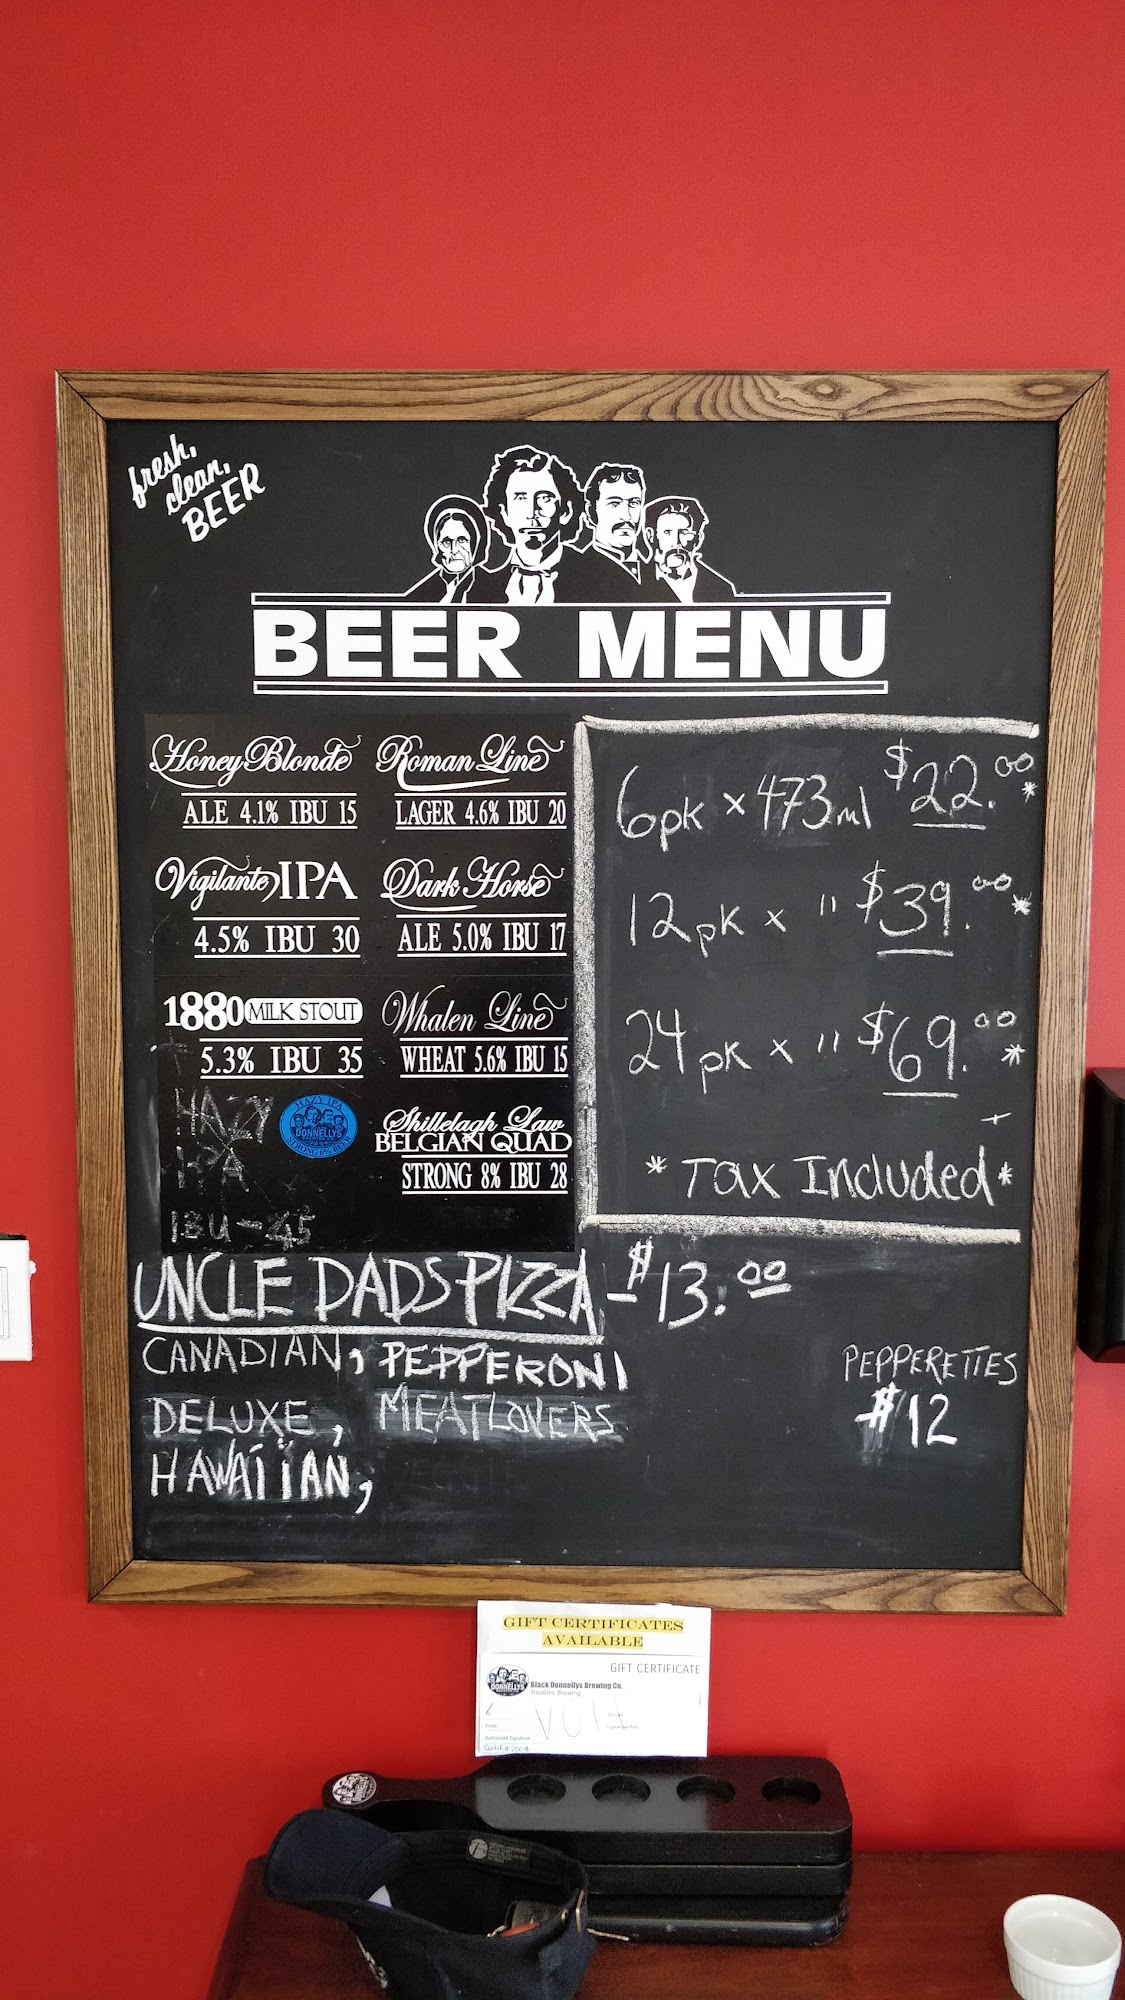 fresh,
clean,
BEER
BEER MENU
Honey Blonde
ALE 4.1% IBU 15
Roman Line
LAGER 4.6% IBU 20
Vigilante IPA
4.5% IBU 30
Dark Horse
ALE 5.0% IBU 17
1880 MILK STOUT
5.3% IBU 35
Whalen Line
WHEAT 5.6% IBU 15
HAZY
IPA
IBU - 45
HAZY IPA
DONNELLYS
STRONG 6% BEER
Shillelagh Law
BELGIAN QUAD
STRONG 8% IBU 28
6pk x 473ml $22.00 *
12pk x " $39.00 *
24pk x " $69.00 *
* Tax Included *
UNCLE DADS PIZZA - $13.00
CANADIAN, PEPPERONI
DELUXE, MEATLOVERS
HAWAIIAN,
PEPPERETTES
$12
GIFT CERTIFICATES
AVAILABLE
GIFT CERTIFICATE
DONNELLYS
Black Donnellys Brewing Co.
Troubles Brewing
VOID
Authorized Signature